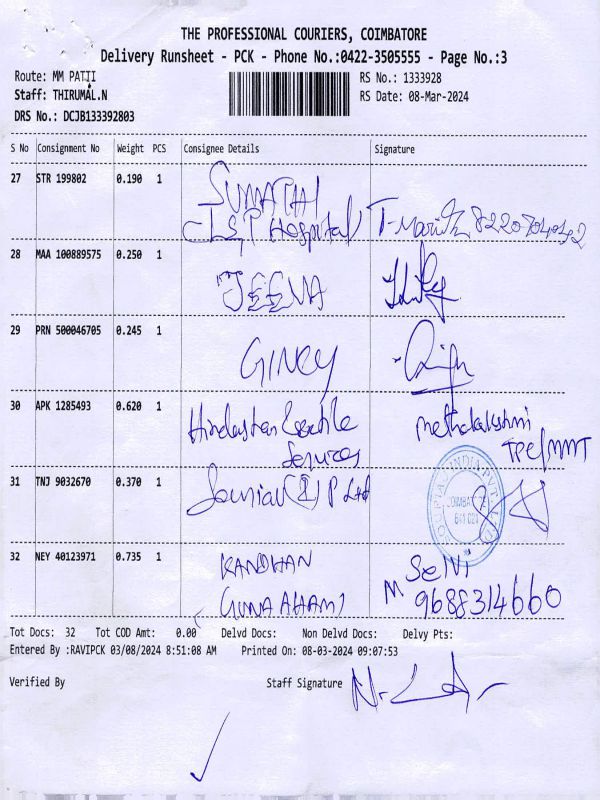 THE PROFESSIONAL COURIERS, COIMBATORE
Delivery Runsheet - PCK - Phone No.:0422-3505555 - Page No.:3
Route: MM PATTI RS No.: 1333928
Staff: THIRUMAL.N RS Date: 08-Mar-2024
DRS No.: DCJB133392803
S No Consignment No Weight PCS Consignee Details Signature
27 STR 199802 0.190 1 SUMATHI
Hospital)
28 MAA 100889575 0.250 1 JEEVA
29 PRN 500046705 0.245 1 GINCY
30 APK 1285493 0.620 1 Hindustan Textile
Services
31 TNJ 9032670 0.370 1 P Ltd
32 NEY 40123971 0.735 1 KANDHAN Selvi
M 9688314660
Tot Docs: 32 Tot COD Amt: 0.00 Delvd Docs: Non Delvd Docs: Delvy Pts:
Entered By :RAVIPCK 03/08/2024 8:51:08 AM Printed On: 08-03-2024 09:07:53
Verified By Staff Signature